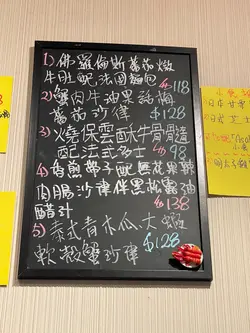 1) 佛羅倫斯蕃茄燉
牛肚配法國麵包
$118
2) 蟹肉牛油果話梅
蕃茄沙律
$128
3) 火燒保雲酥牛骨髓
配法式多士
$98
4) 香煎帶子配無花果鵝
肉腸沙律伴黑松露油
醋汁
$138
5) 泰式青木瓜大蝦
軟殼蟹沙律
$128